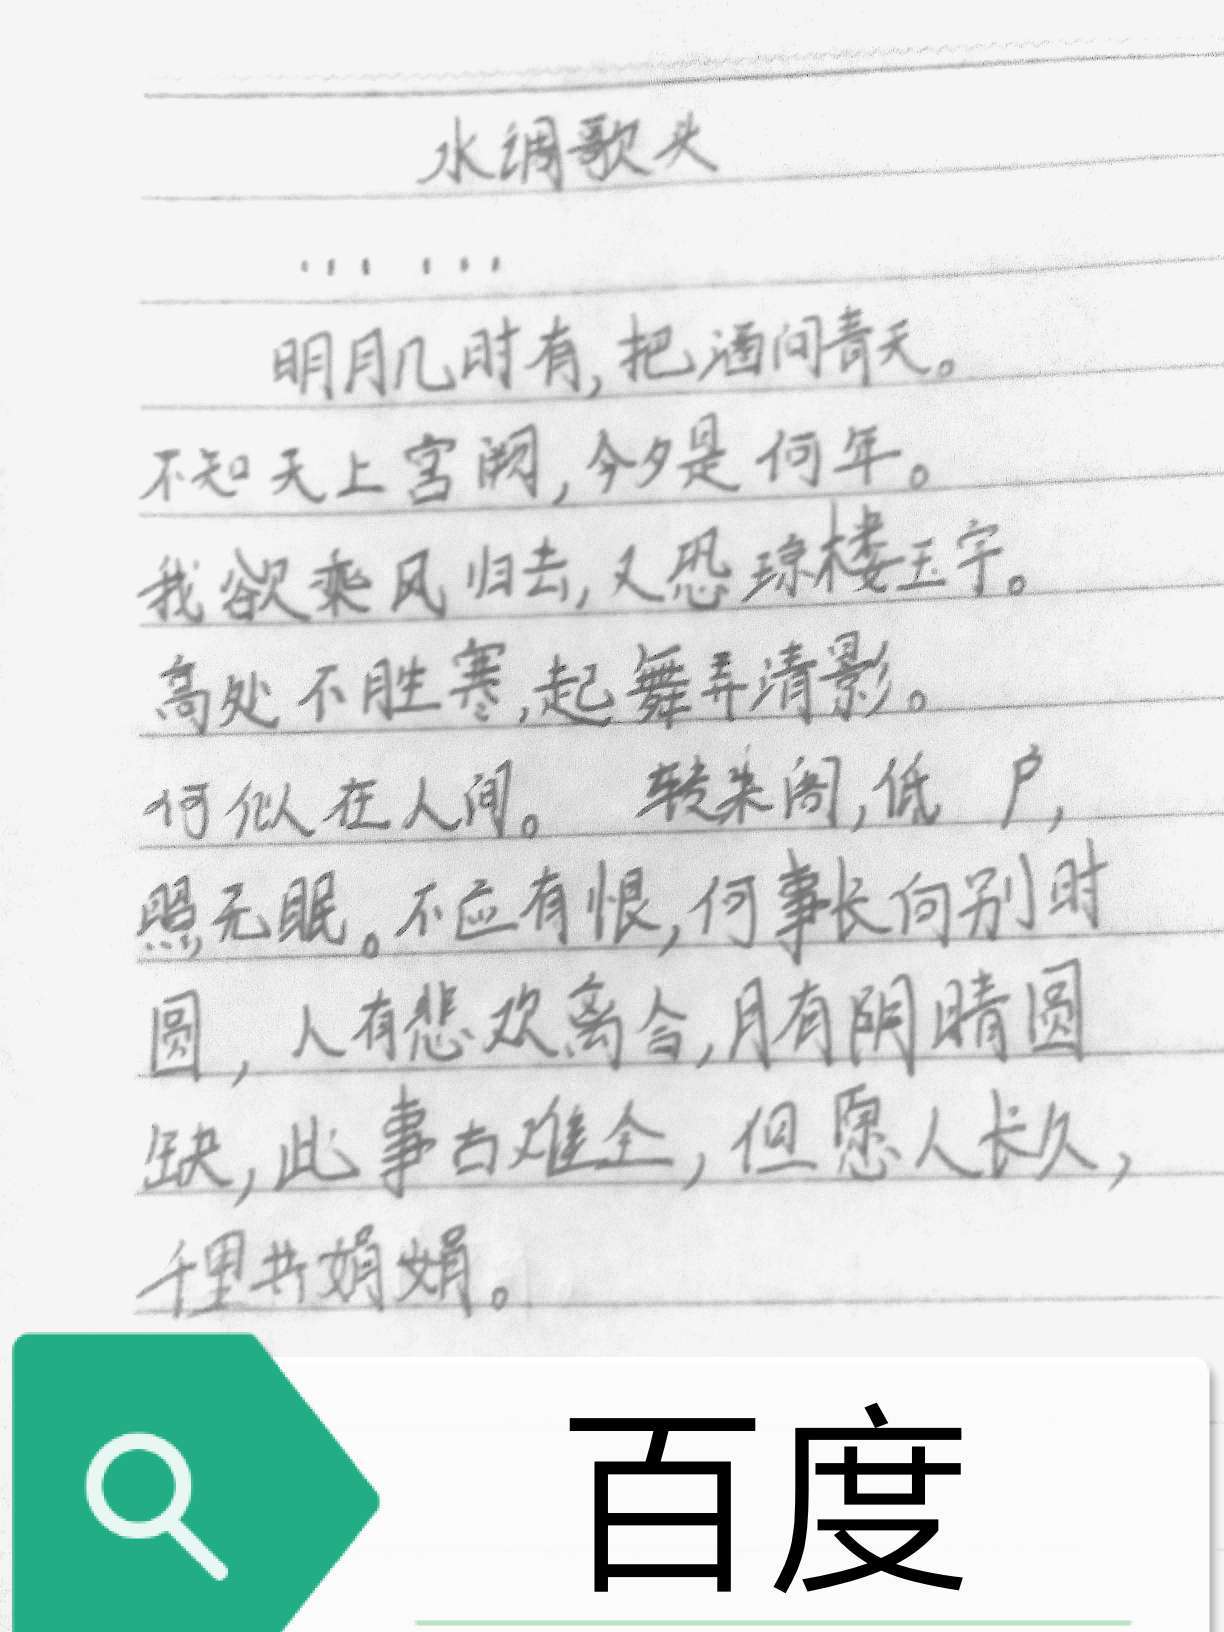 水调歌头
...  ...
明月几时有,把酒问青天。
不知天上宫阙,今夕是何年。
我欲乘风归去,又恐琼楼玉宇。
高处不胜寒,起舞弄清影。
何似在人间。 转朱阁,低 户,
照无眠。不应有恨,何事长向别时
圆,人有悲欢离合,月有阴晴圆
缺,此事古难全,但愿人长久,
千里共娟娟。
百度